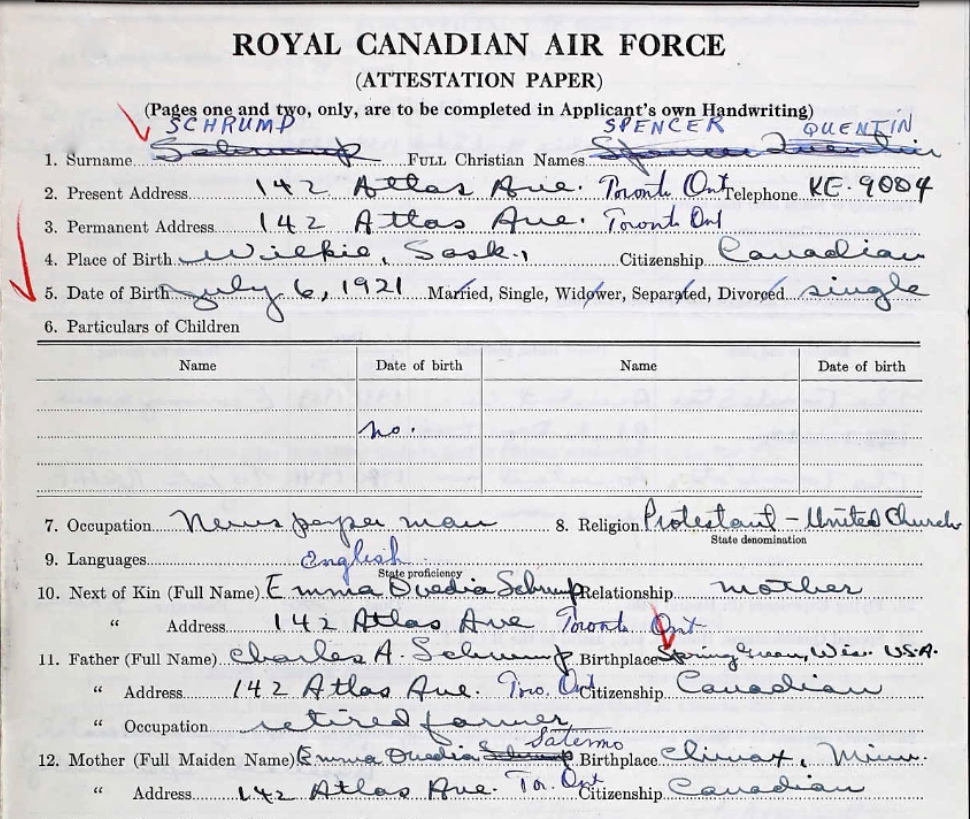 ROYAL CANADIAN AIR FORCE
(ATTESTATION PAPER)
(Pages one and two, only, are to be completed in Applicant's own Handwriting)
SCHRUMP SPENCER QUENTIN
1. Surname Schrump FULL Christian Names Spencer Quentin
2. Present Address 142 Atlas Ave. Toronto Ont Telephone KE.9004
3. Permanent Address 142 Atlas Ave. Toronto Ont
4. Place of Birth Wilkie, Sask., Citizenship Canadian
5. Date of Birth July 6, 1921 Married, Single, Widower, Separated, Divorced single
6. Particulars of Children
Name Date of birth Name Date of birth
no.
7. Occupation Newspaper man 8. Religion Protestant - United Church
State denomination
9. Languages English
State proficiency
10. Next of Kin (Full Name) Emma Ovedia Schrump Relationship mother
" Address 142 Atlas Ave Toronto Ont
11. Father (Full Name) Charles A. Schrump Birthplace Spring Wis. U.S.A.
" Address 142 Atlas Ave. Tor. Ont Citizenship Canadian
" Occupation retired farmer
Satermo
12. Mother (Full Maiden Name) Emma Ovedia Schrump Birthplace Climax, Minn.
" Address 142 Atlas Ave. Tor. Ont Citizenship Canadian